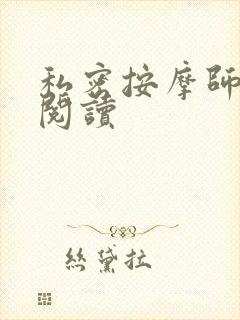 私密按摩師
閱讀
絲黛拉